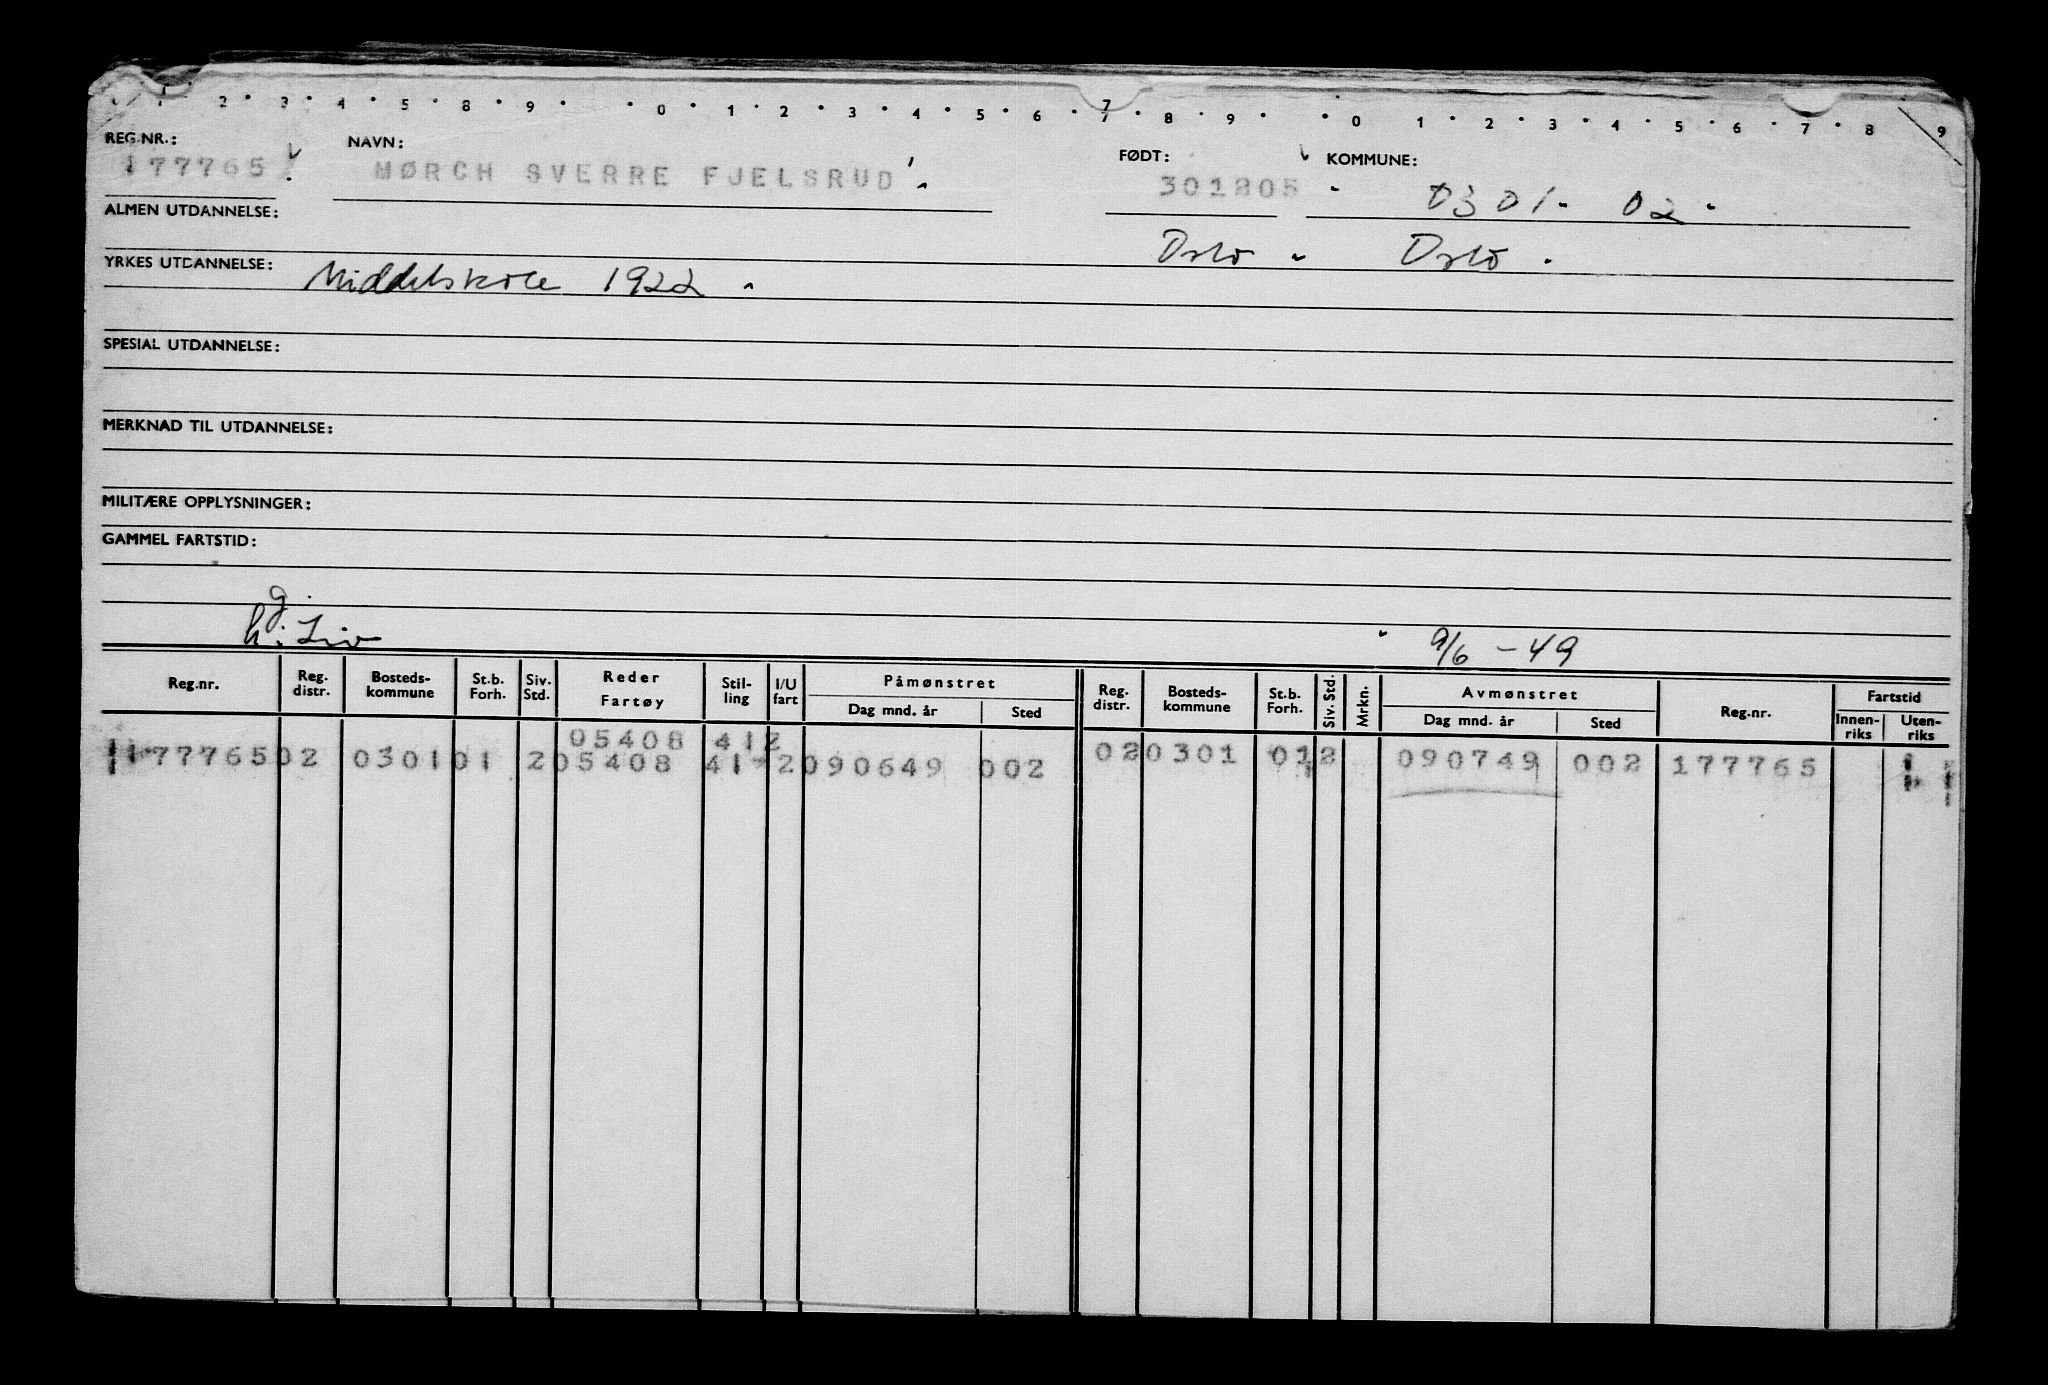 1 2 3 4 5 8 9 0 1 2 3 4 5 6 7 8 9 0 1 2 3 4 5 6 7 8 9
REG.NR.: NAVN: FØDT: KOMMUNE:
177765 MØRCH SVERRE FJELSRUD 301205 0301- 02
ALMEN UTDANNELSE:
Oslo Oslo
YRKES UTDANNELSE: Middelskole 1922
SPESIAL UTDANNELSE:
MERKNAD TIL UTDANNELSE:
MILITÆRE OPPLYSNINGER:
GAMMEL FARTSTID:
g.
h: Liv 9/6 - 49
Reg.nr. Reg. distr. Bosteds-kommune St.b. Forh. Siv. Std. Reder Fartøy Stil-ling I/U fart Påmønstret Dag mnd. år Sted Reg. distr. Bosteds-kommune St.b. Forh. Siv. Std. Mrkn. Avmønstret Dag mnd. år Sted Reg.nr. Fartstid Innen-riks Uten-riks
05408 412
177765 02 0301 01 2 05408 41 2 090649 002 02 0301 01 2 090749 002 177765 1